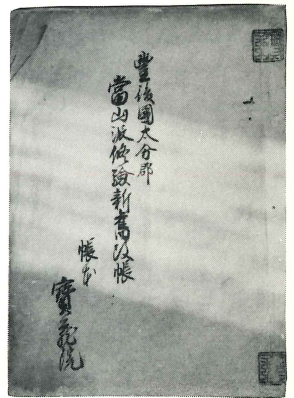 豐後國大分郡
當山派修驗新舊改帳
帳本
寶義院